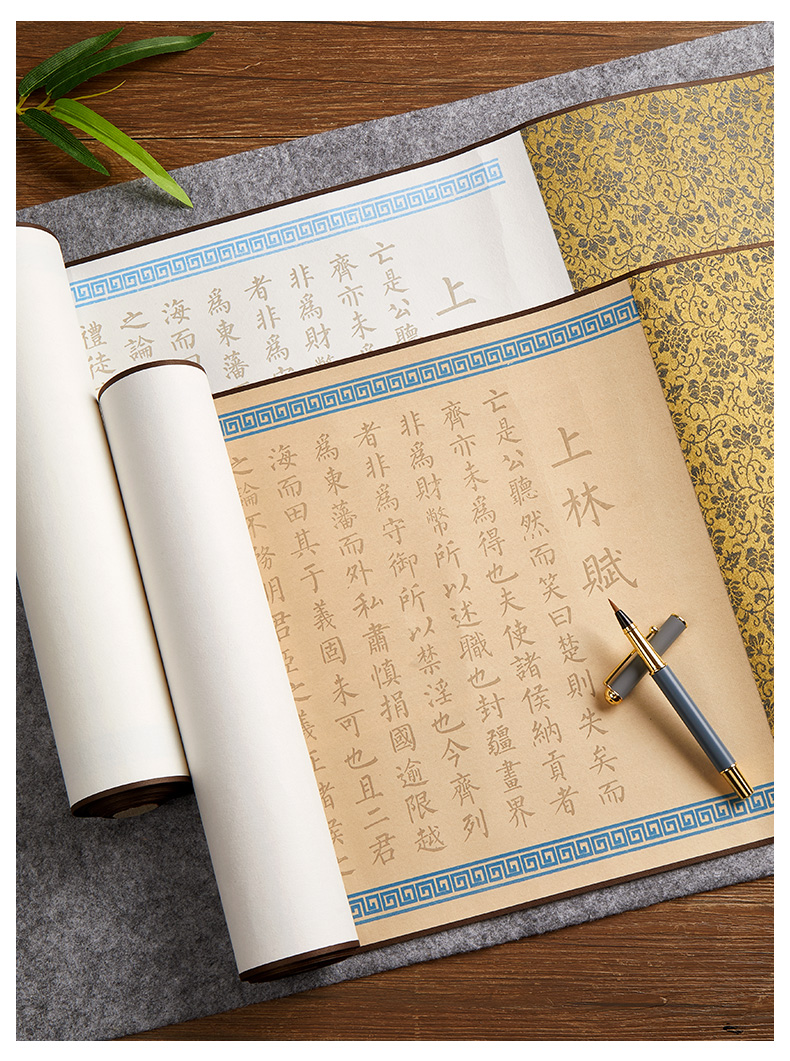 上林賦
亡是公聽然而笑曰楚則失矣而
齊亦未爲得也夫使諸侯納貢者
非爲財幣所以述職也封疆畫界
者非爲守御所以禁淫也今齊列
爲東藩而外私肅慎捐國逾限越
海而田其于義固未可也且二君
之論不務明君臣之義正諸侯之
上
亡是公聽
齊亦未爲
非爲財幣
者非爲守
爲東藩
海而田
之論
禮徒